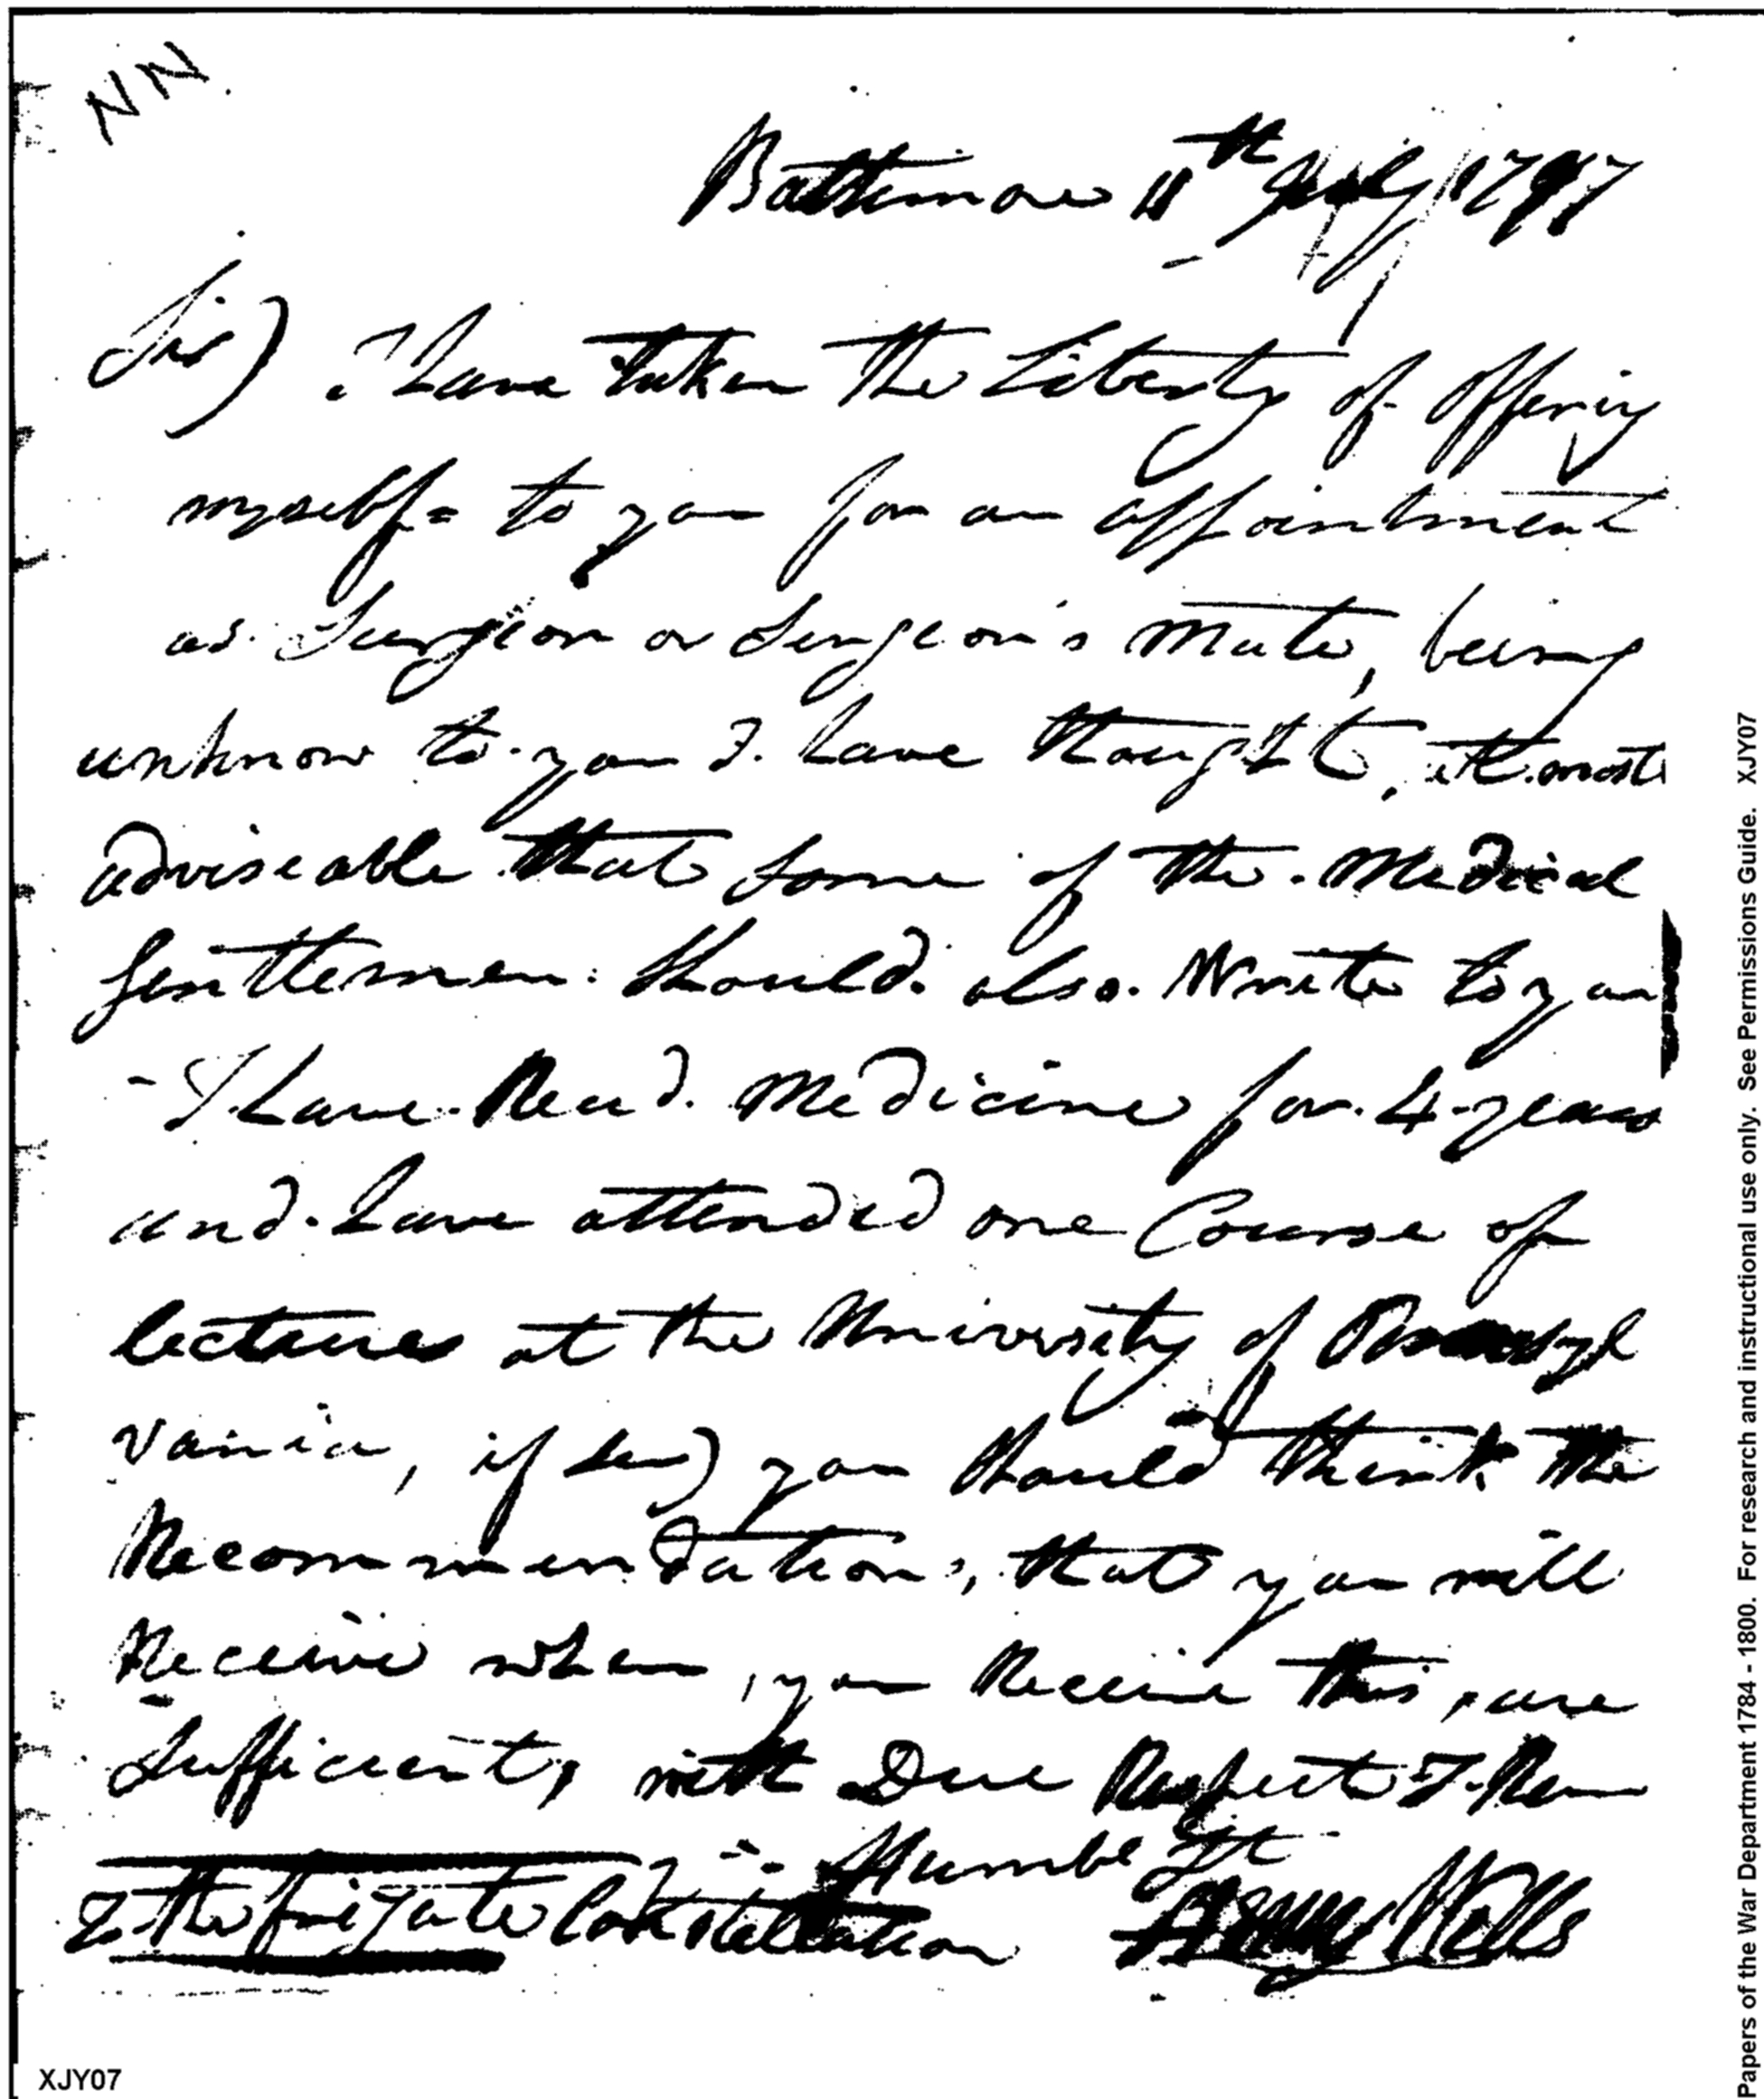 NN.
Baltimore 11th July 1797
Sir) I have taken the Liberty of offering
myself = to you for an appointment
as Surgeon or Surgeon's Mate, being
unknow to you I have thought, it most
adviseable that some of the Medical
Gentlemen should also Write to you
- I have Read Medicine for 4 years
and have attended one Course of
lectures at the University of Pennsyl
vania, if Sir) you should think the
Recommendations, that you will
Receive when, you Receive this, are
Sufficient, with Due Respect I Rem
Humbl St
To the frigate Constellation
Henry Wells
XJY07
Papers of the War Department 1784 - 1800. For research and instructional use only. See Permissions Guide. XJY07